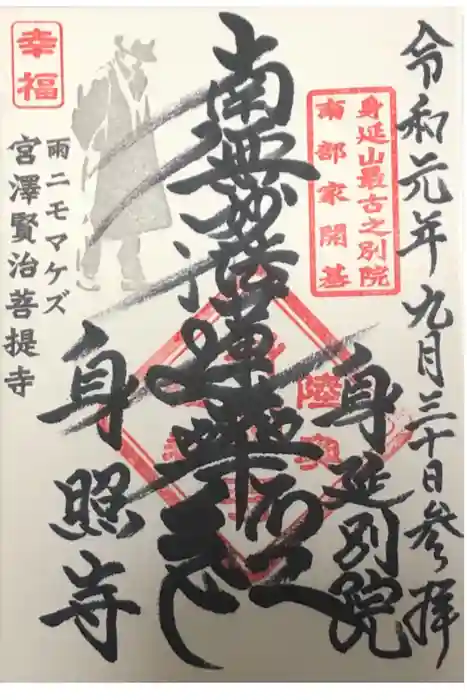 令和元年九月三十日参拝
身延山最古之別院
南部家開基
身延別院
南無妙法蓮華経
陸奥
身照寺
幸福
雨ニモマケズ
宮澤賢治菩提寺